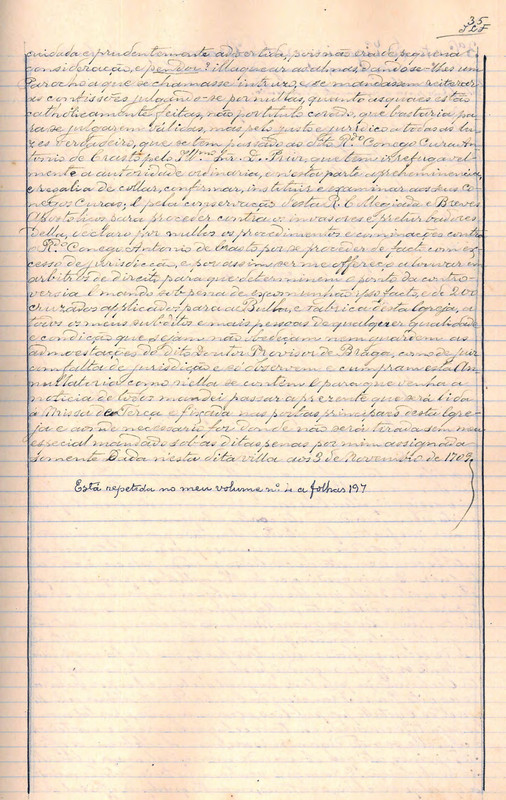 35
cuidada e prudentemente advertida, pois não era de pequena
consideração, e pendou? illaquear as almas, dando-se-lhes um
Parocho a que se chamasse intruzo, e se mandassem reiterar
as confissões julgando-se por nullas, quanto as quaes estão
catholicamente feitas, não por titulo corado, que bastaria pa-
ra se julgarem validas, mas pelo justo e juridico a todas as lu-
zes verdadeiro, que se tem passado ao dito R.do Conego Cura An-
tonio de Crasto pelo Snr. D. Prior, que tem irrefugavel-
mente a autoridade ordinaria, em esta parte a prehiminencia
e regalia de collar, confirmar, instituir e examinar aos seus Co-
negos Curas; E pela conservação desta R. Collegiada e Breves
Apostolicos para proceder contra os invasores e preturbadores
della, declaro por nullos os procedimentos e cominações contra
o R.do Conego Antonio de Crasto por se proceder de facto com ex-
cesso de jurisdicção, e por assim ser me offereço a louvar em
arbitros de direito para que determinem o ponto da contro-
versia E mando sob pena de excomunhão ipso facto, e de 200
cruzados applicados para a Bulla, e Fabrica desta Igreja, a
todos os meus subditos e mais pessoas de qualquer qualidade
e condição que sejam não obedeçam nem guardem as
admoestações do dito Doutor Provisor de Braga, como de juiz
com falta de jurisdição e só observem e cumpram esta An-
nullatoria como nella se contem E para que venha a
noticia de todos mandei passar a presente que será lida
á Missa de Terça e fixada nas portas principaes desta Igre-
ja e aonde necessario for donde não será tirada sem meu
especial mandado sob as ditas penas por mim assignada
somente Dada nesta dita villa aos 3 de Novembro de 1709
Está repetida no meu volume nº 4 a folhas 197